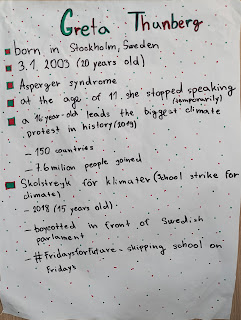 Greta Thunberg
born in Stockholm, Sweden
3.1. 2003 (20 years old)
Asperger syndrome
at the age of 11, she stopped speaking
(temporarily)
a 16 year-old leads the biggest climate
protest in history (2019)
- 150 countries
- 7.6 million people joined
Skolstrejk för klimatet (School strike for
climate)
- 2018 (15 years old)
- boycotted in front of Swedish
parlament
- #Fridaysforfuture - skipping school on
Fridays